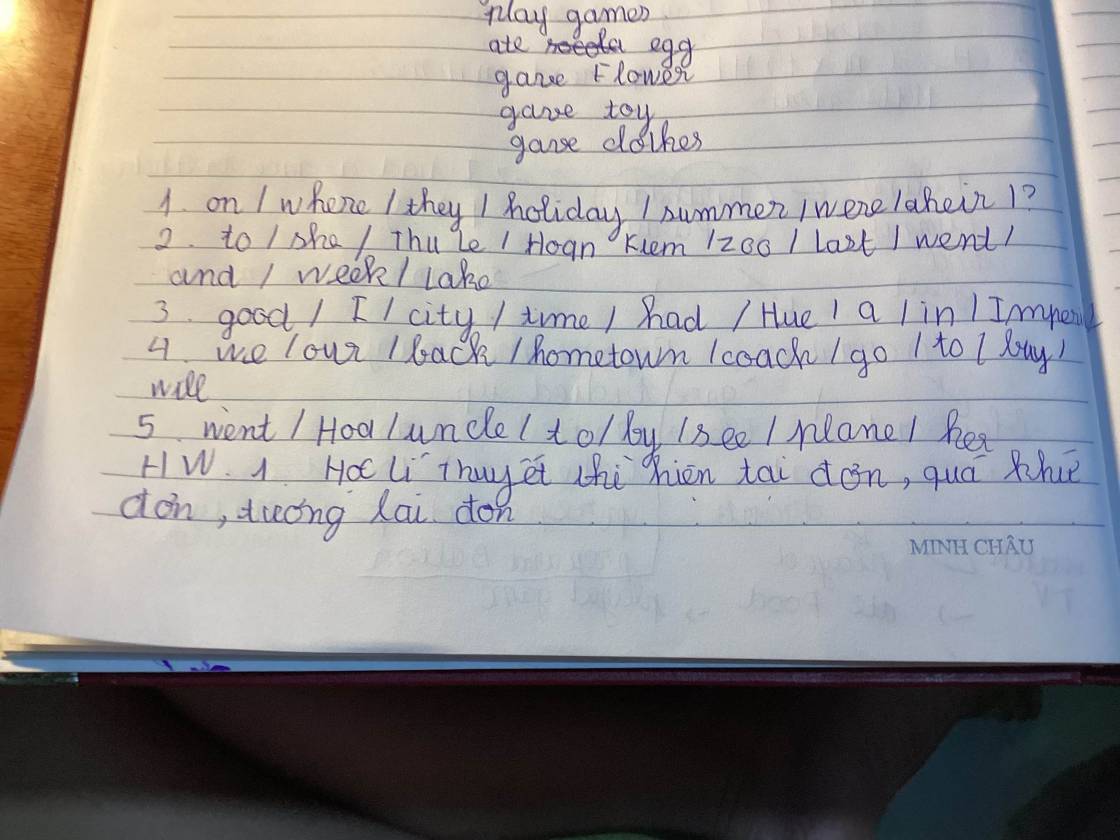 play games
ate egg
gave Flower
gave toy
gave clothes
1. on / where / they / holiday / summer / were / aheir / ?
2. to / she / Thu le / Hoan Kiem / zoo / last / went /
and / week / lake
3. good / I / city / time / had / Hue / a / in / Imperial
4. we / our / back / hometown / coach / go / to / buy /
will
5. went / Hoa / uncle / to / by / see / plane / her
HW. 1. Học lí thuyết thì hiện tại đơn, quá khứ
đơn, tương lai đơn
MINH CHÂU